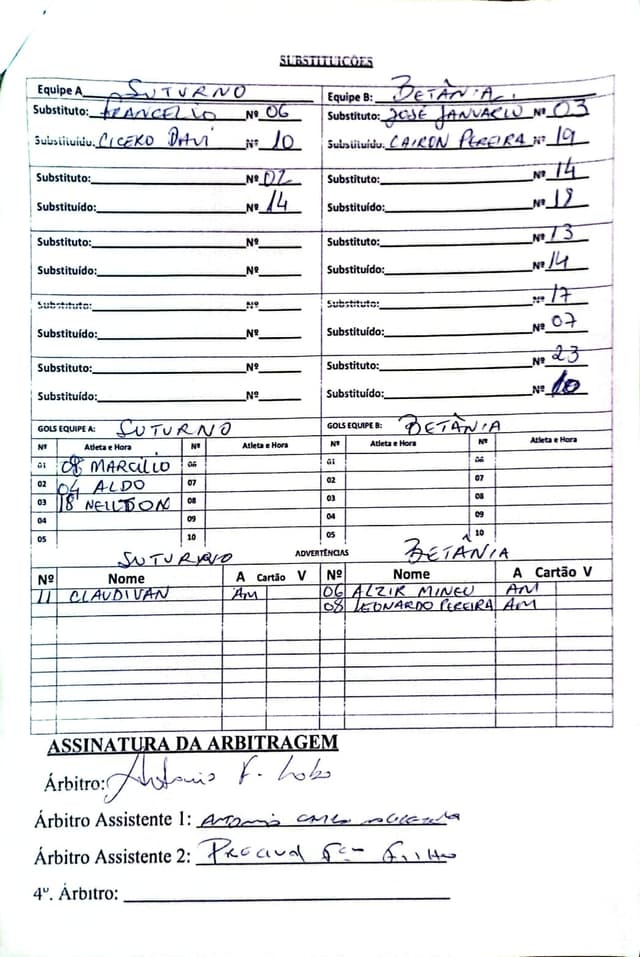 SUBSTITUIÇÕES
Equipe A SUTURNO
Equipe B: BETÂNIA.
Substituto: FRANCELIO Nº 06
Substituto: JOSÉ JANUÁRIO Nº 03
Substituído: CICERO DAVI Nº 10
Substituído: CAIRON PEREIRA Nº 19
Substituto: Nº 02
Substituto: Nº 14
Substituído: Nº 14
Substituído: Nº 18
Substituto: Nº
Substituto: Nº 13
Substituído: Nº
Substituído: Nº 14
Substituto: Nº
Substituto: Nº 17
Substituído: Nº
Substituído: Nº 07
Substituto: Nº
Substituto: Nº 23
Substituído: Nº
Substituído: Nº 10
GOLS EQUIPE A: SUTURNO
GOLS EQUIPE B: BETÂNIA
Nº Atleta e Hora Nº Nº Atleta e Hora Nº Atleta e Hora
01 08 MARCÍLIO 06 01 06
02 04 ALDO 07 02 07
03 18 NEILTDON 08 03 08
04 09 04 09
05 10 05 10
SUTURNO ADVERTÊNCIAS BETÂNIA
Nº Nome A Cartão V Nº Nome A Cartão V
11 CLAUDIVAN AM 06 ALZIR MINEU AM
08 LEONARDO PEREIRA AM
ASSINATURA DA ARBITRAGEM
Árbitro: Antonio F. Lobo
Árbitro Assistente 1: ANTONIO
Árbitro Assistente 2: FILHO
4º. Árbitro: